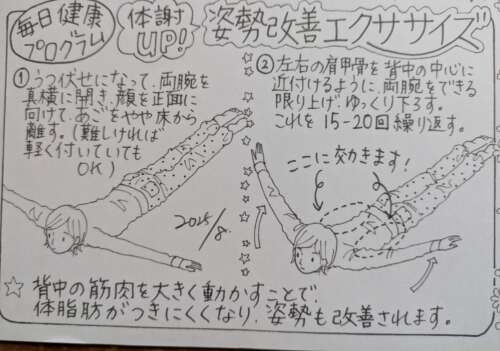 毎日健康
プログラム
体謝
UP!
姿勢改善エクササイズ
① うつ伏せになって、両腕を
真横に開き、顔を正面に
向けて、あごをやや床から
離す。(難しければ
軽く付いていても
OK)
② 左右の肩甲骨を背中の中心に
近付けるように、両腕をできる
限り上げ、ゆっくり下ろす。
これを15-20回繰り返す。
ここに効きます!
2025/8
☆ 背中の筋肉を大きく動かすことで、
体脂肪がつきにくくなり、姿勢も改善されます。